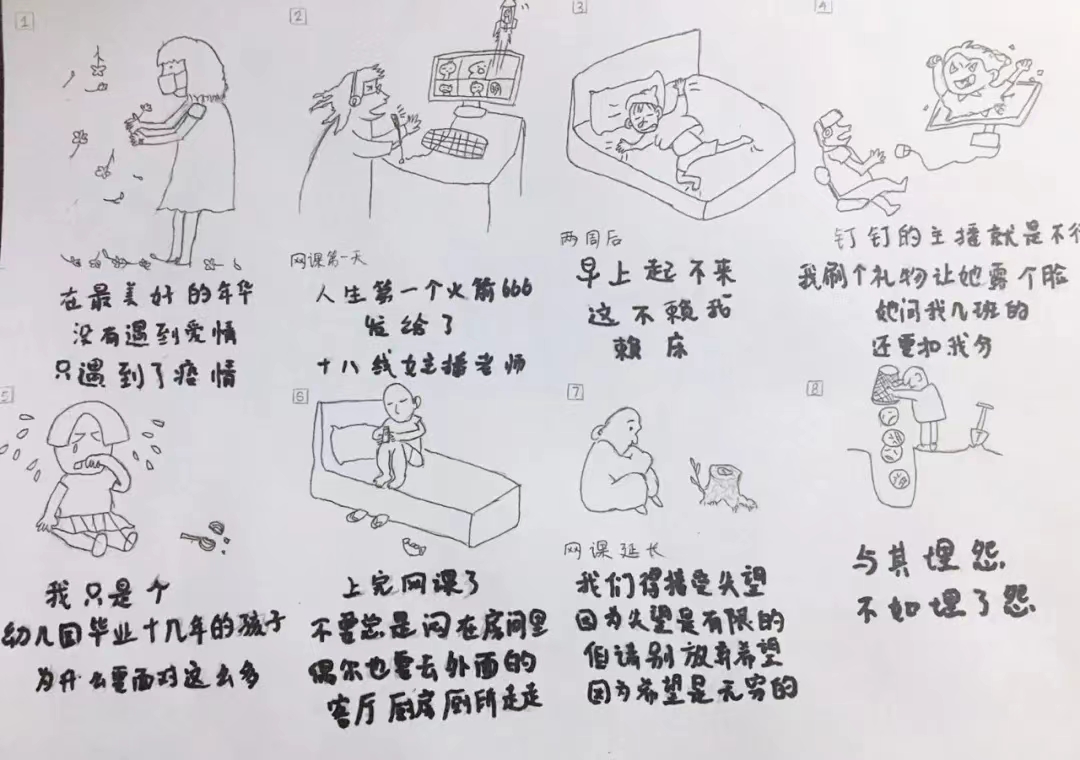 1
在最美好的年华
没有遇到爱情
只遇到了疫情
2
网课第一天
人生第一个火箭666
发给了
十八线女主播老师
3
两周后
早上起不来
这不赖我
赖床
4
钉钉的主播就是不行
我刷个礼物让她露个脸
她问我几班的
还要扣我分
5
我只是个
幼儿园毕业十几年的孩子
为什么要面对这么多
6
上完网课了
不要总是闷在房间里
偶尔也要去外面的
客厅厨房厕所走走
7
网课延长
我们得接受失望
因为失望是有限的
但请别放弃希望
因为希望是无穷的
8
与其埋怨
不如埋了怨